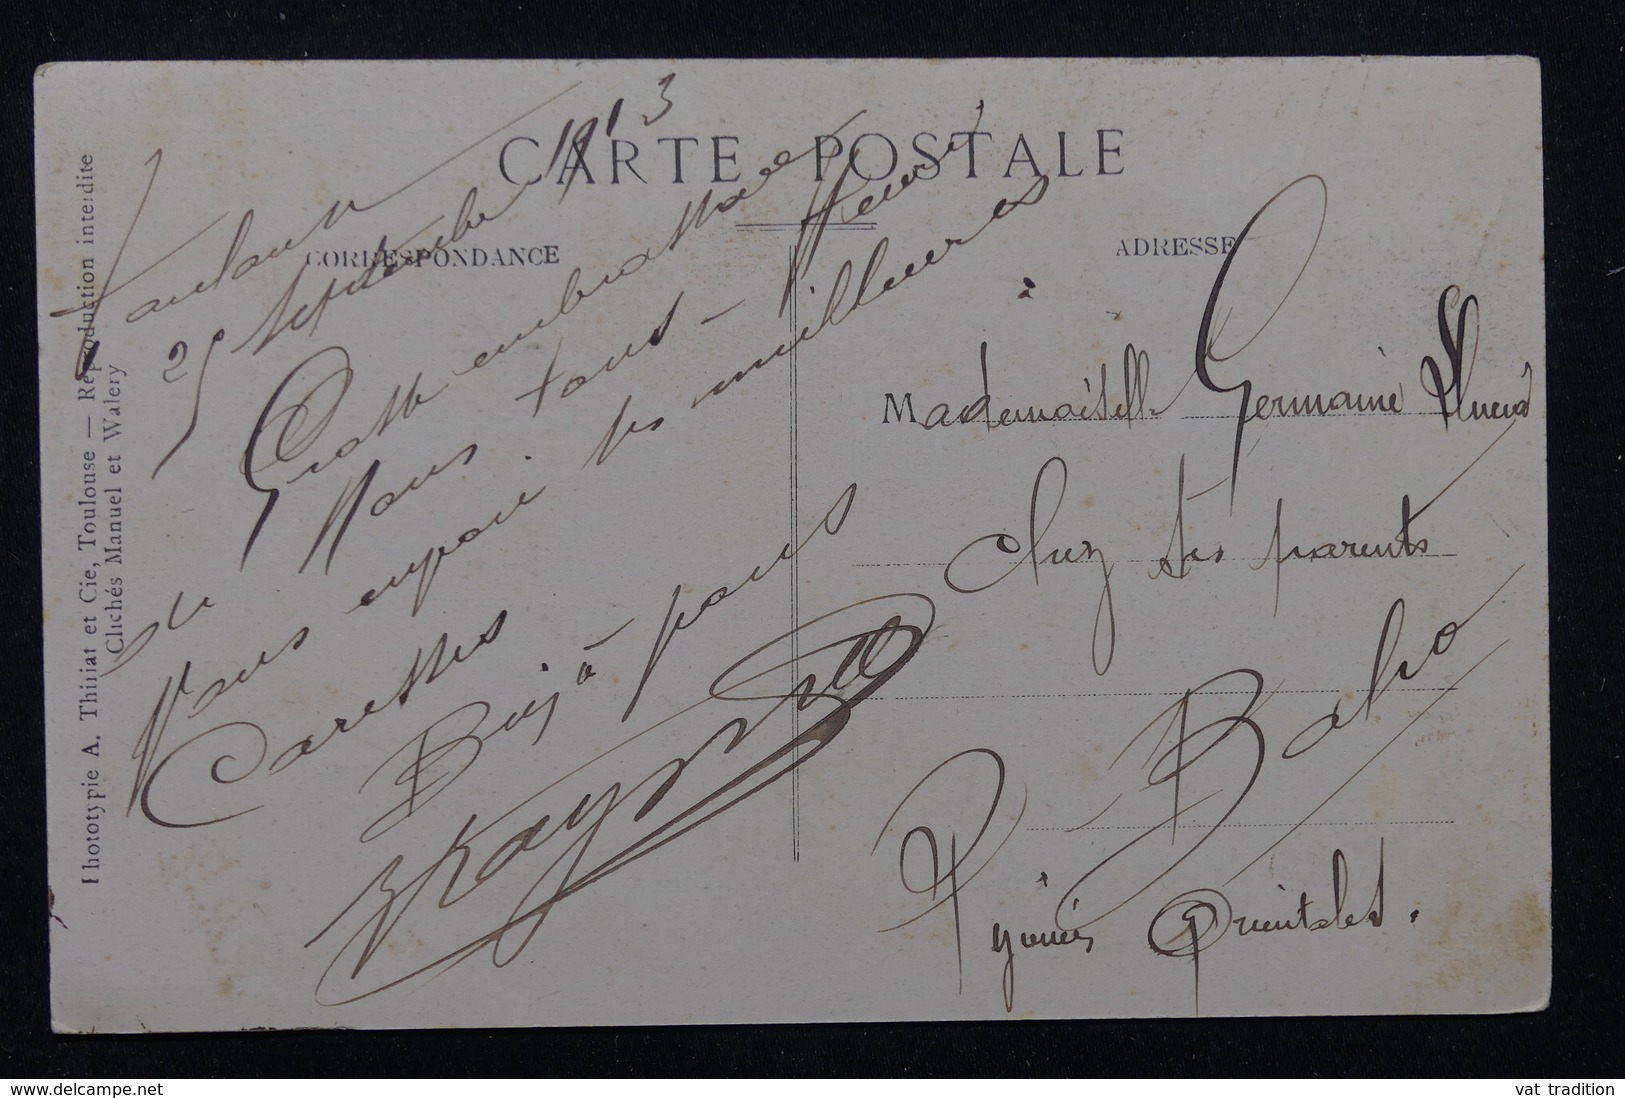 CARTE POSTALE
CORRESPONDANCE
ADRESSE
Phototypie A. Thiriat et Cie, Toulouse — Reproduction interdite
Clichés Manuel et Walery
25 Septembre 1913
Grosse embrassade
de Nous tous - Henri
Vous envoie ses meilleures
Caresses
Bizà pous
Mademoiselle Germaine
Chez ses parents
Baho
Pyrénées Orientales.
delcampe.net
vat_tradition